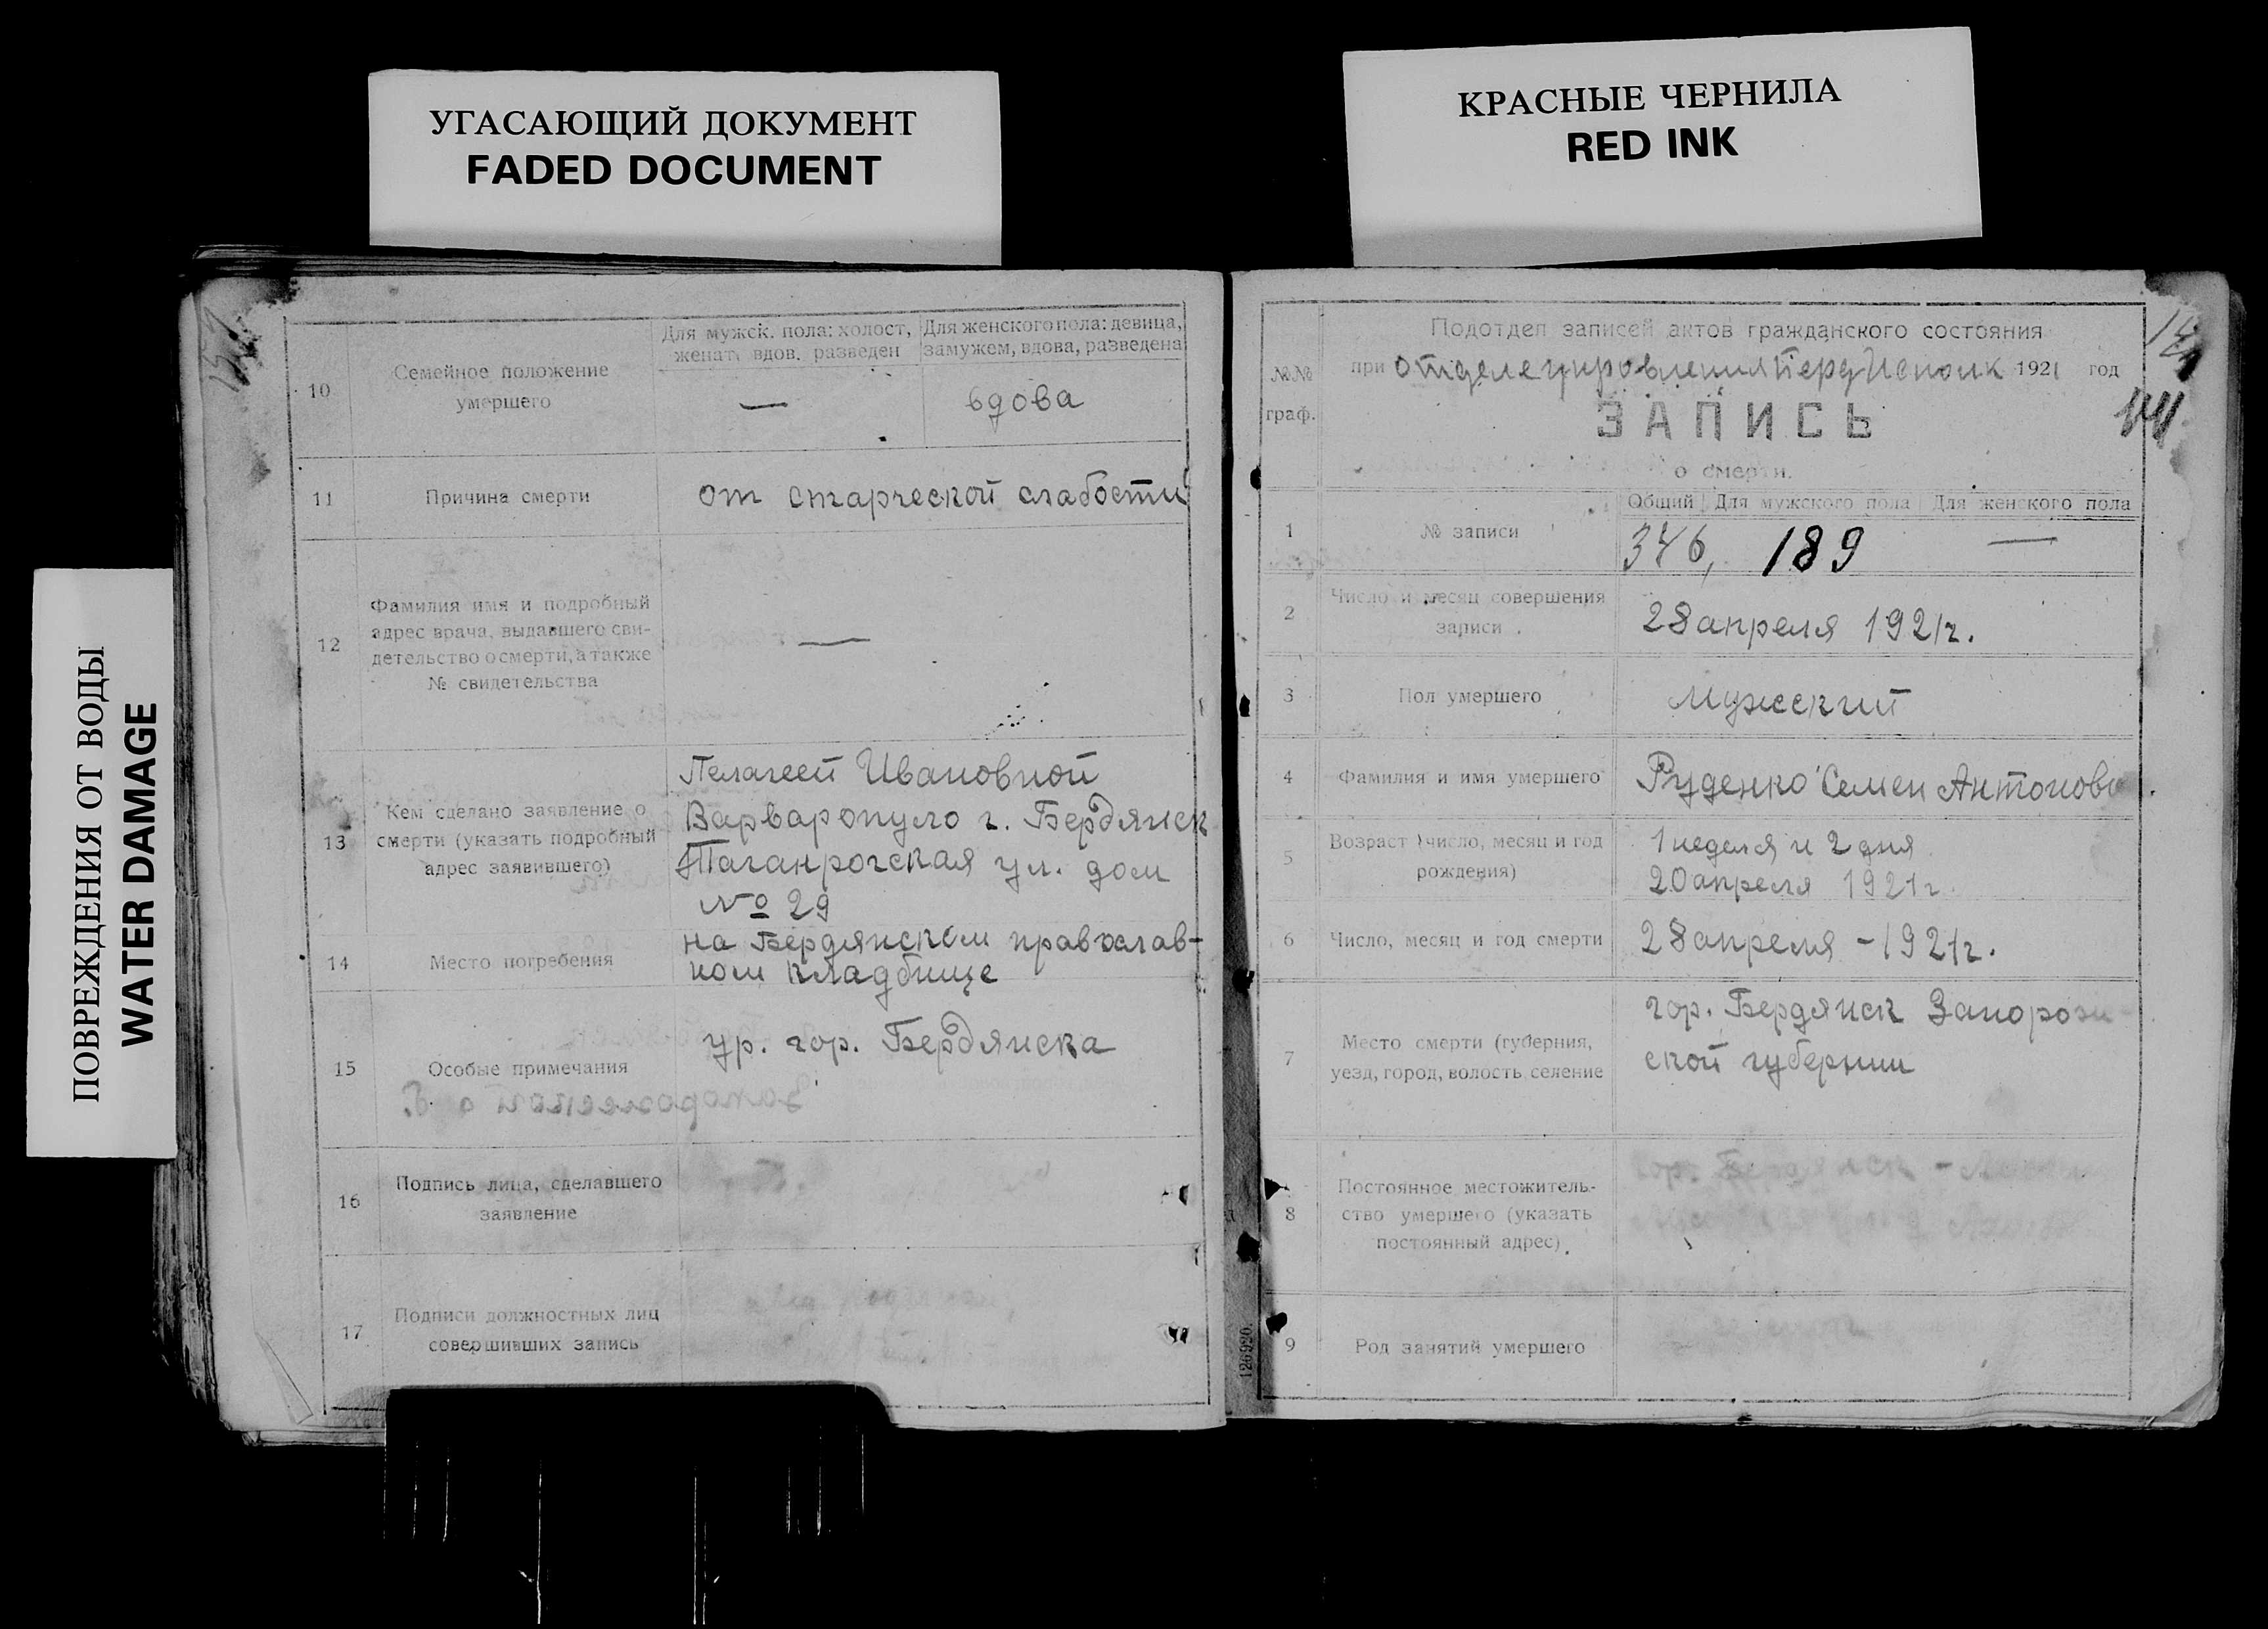 УГАСАЮЩИЙ ДОКУМЕНТ
FADED DOCUMENT
КРАСНЫЕ ЧЕРНИЛА
RED INK
ПОВРЕЖДЕНИЯ ОТ ВОДЫ
WATER DAMAGE
Для мужск. пола: холост,
женат, вдов. разведен
Для женского пола: девица,
замужем, вдова, разведена
10
Семейное положение
умершего
—
вдова
11
Причина смерти
от старческой слабости
12
Фамилия имя и подробный
адрес врача, выдавшего сви-
детельство о смерти, а также
№ свидетельства
—
13
Кем сделано заявление о
смерти (указать подробный
адрес заявившего)
Пелагеей Ивановной
Варваропуло г. Бердянск
Таганрогская ул. дом
№ 29
14
Место погребения
на Бердянском православ-
ном кладбище
15
Особые примечания
ур. гор. Бердянска
16
Подпись лица, сделавшего
заявление
17
Подписи должностных лиц
совершивших запись
Подотдел записей актов гражданского состояния
№№
граф.
при отделе управления 1921 год
ЗАПИСЬ
о смерти.
Общий Для мужского пола Для женского пола
1
№ записи
346, 189 —
2
Число и месяц совершения
записи
28 апреля 1921 г.
3
Пол умершего
Мужский
4
Фамилия и имя умершего
Руденко Семен Антонов
5
Возраст (число, месяц и год
рождения)
1 неделя и 2 дня
20 апреля 1921 г.
6
Число, месяц и год смерти
28 апреля - 1921 г.
7
Место смерти (губерния,
уезд, город, волость, селение
гор. Бердянск Запорож-
ской губернии
8
Постоянное местожитель-
ство умершего (указать
постоянный адрес)
гор. Бердянск -
9
Род занятий умершего
126920.